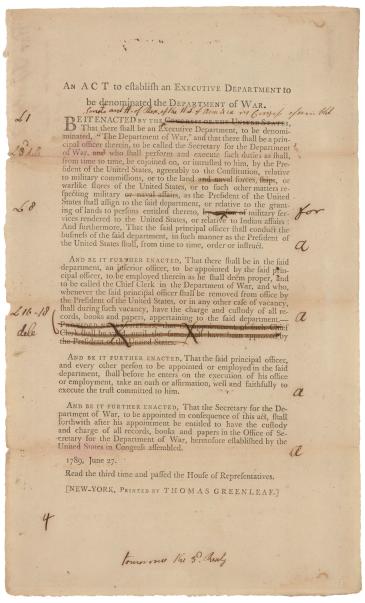 AN ACT to establish an EXECUTIVE DEPARTMENT to
be denominated the DEPARTMENT OF WAR.
L 1
BE IT ENACTED BY THE CONGRESS OF THE UNITED STATES,
That there shall be an Executive Department, to be denomi-
nated, "The Department of War," and that there shall be a prin-
cipal officer therein, to be called the Secretary for the Department
of War, who shall perform and execute such duties as shall,
from time to time, be enjoined on, or intrusted to him, by the Pre-
sident of the United States, agreeably to the Constitution, relative
to military commissions, or to the land and naval forces, ships, or
warlike stores of the United States, or to such other matters re-
specting military or naval affairs, as the President of the United
States shall assign to the said department, or relative to the grant-
L 8
ing of lands to persons entitled thereto, by military ser-
for
vices rendered to the United States, or relative to Indian affairs:
And furthermore, That the said principal officer shall conduct the
business of the said department, in such manner as the President of
a
the United States shall, from time to time, order or instruct.
AND BE IT FURTHER ENACTED, That there shall be in the said
department, an inferior officer, to be appointed by the said prin-
cipal officer, to be employed therein as he shall deem proper, and
to be called the Chief Clerk in the Department of War, and who,
whenever the said principal officer shall be removed from office by
the President of the United States, or in any other case of vacancy,
shall during such vacancy, have the charge and custody of all re-
L 16-18
cords, books and papers, appertaining to the said department.
dele
PROVIDED NEVERTHELESS, That no appointment of such Chief
Clerk shall be valid, until the same shall have been approved by
the President of the United States.
AND BE IT FURTHER ENACTED, That the said principal officer,
and every other person to be appointed or employed in the said
department, shall before he enters on the execution of his office
or employment, take an oath or affirmation, well and faithfully to
execute the trust committed to him.
a
AND BE IT FURTHER ENACTED, That the Secretary for the De-
partment of War, to be appointed in consequence of this act, shall
forthwith after his appointment be entitled to have the custody
a
and charge of all records, books and papers in the Office of Se-
cretary for the Department of War, heretofore established by the
United States in Congress assembled.
a
1789, June 27.
Read the third time and passed the House of Representatives.
[NEW-YORK, PRINTED BY THOMAS GREENLEAF.]
4